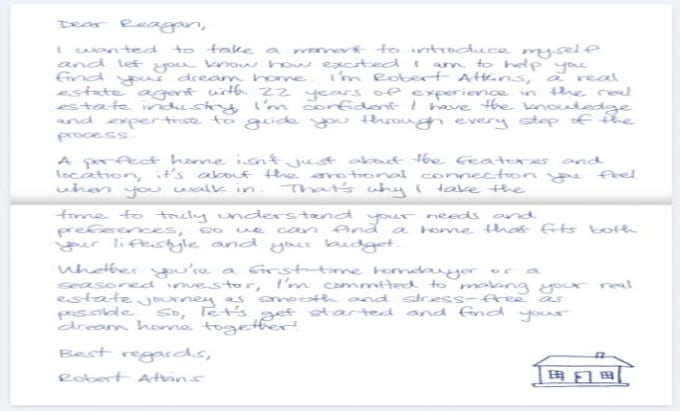 Dear Reagan,
I wanted to take a moment to introduce myself
and let you know how excited I am to help you
find your dream home. I'm Robert Atkins, a real
estate agent with 22 years of experience in the real
estate industry, I'm confident I have the knowledge
and expertise to guide you through every step of the
process.
A perfect home isn't just about the features and
location, it's about the emotional connection you feel
when you walk in. That's why I take the
time to truly understand your needs and
preferences, so we can find a home that fits both
your lifestyle and your budget.
Whether you're a first-time homebuyer or a
seasoned investor, I'm committed to making your real
estate journey as smooth and stress-free as
possible. So, let's get started and find your
dream home together!
Best regards,
Robert Atkins